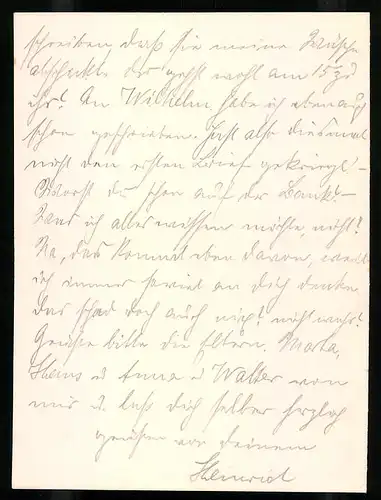 schreiben, daß sie meine Wäsche
abschickt. Du gehst wohl am 15 zu
ihr? An Wilhelm habe ich eben auch
schon geschrieben. Hast also diesmal
nicht den ersten Brief gekriegt.
Warst du schon auf der Bank?
Was ich alles wissen möchte, nicht?
Na, das kommt eben davon, weil
ich immer soviel an dich denke,
das schad doch auch nicht, nicht wahr?
Grüße bitte die Eltern, Marta,
Heins u Anna u Walter von
mir u. laß dich selber herzlich
grüßen von deinem
Heinrich